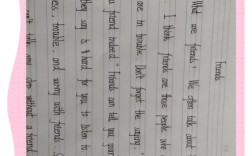 Friends
What are friends? We often talk about
I think friends are those people who
are in trouble. Don't forget the saying
friend indeed." Friends can tell you your
they say is hard for you to listen to
trouble, and worry with friends.
without a friend